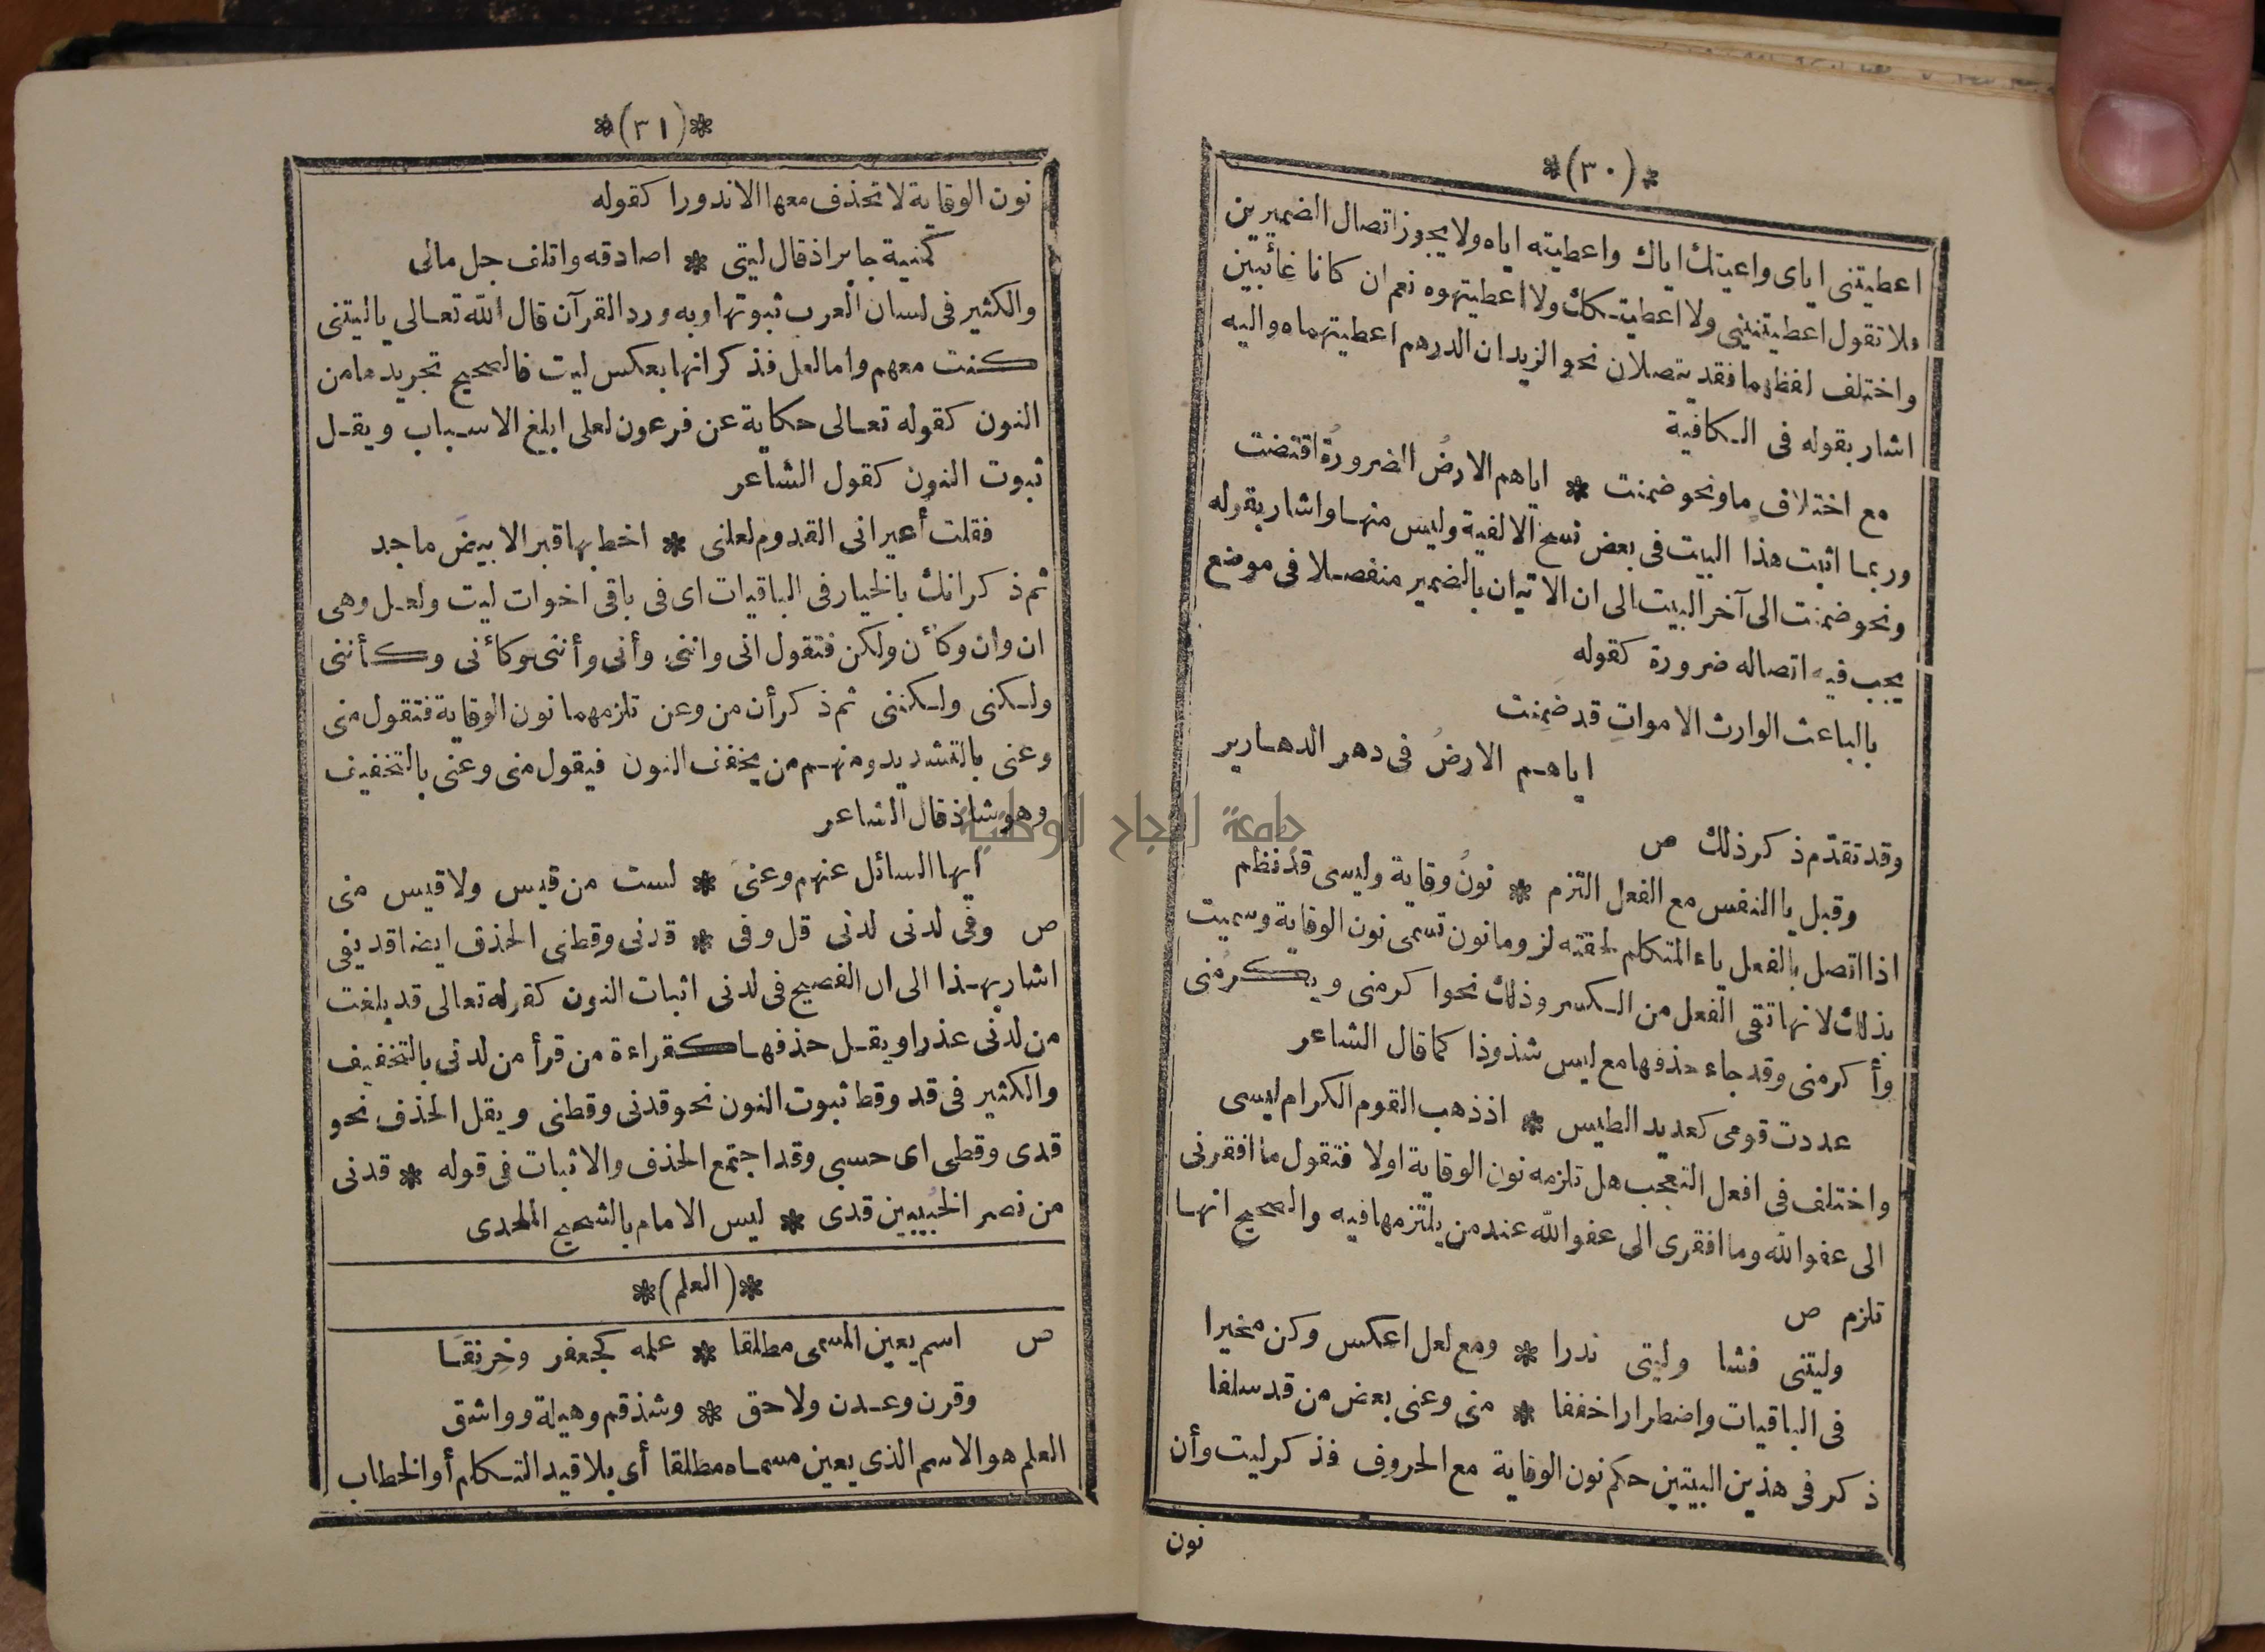 *(٣٠)*
اعطيتنى اياى واعيتك اياك واعطيته اياه ولا يجوز اتصال الضميرين
فلا تقول اعطيتنينى ولا اعطيتكك ولا اعطيتهوه نعم ان كانا غائبين
واختلف لفظهما فقد يتصلان نحو الزيدان الدرهم اعطيتهماه واليه
اشار بقوله فى الكافية
مع اختلاف ما ونحو ضمنت * اياهم الارضُ الضرورةُ اقتضت
وربما اثبت هذا البيت فى بعض نسخ الالفية وليس منها واشار بقوله
ونحو ضمنت الى آخر البيت الى ان الاتيان بالضمير منفصلا فى موضع
يجب فيه اتصاله ضرورة كقوله
بالباعث الوارث الامواتِ قد ضمِنت
اياهم الارضُ فى دهر الدهارير
وقد تقدّم ذكر ذلك ص
وقبل يا النفس مع الفعل التزم * نونُ وقاية وليسى قد نظم
اذا اتصل بالفعل ياء المتكلم لحقته لزوما نون تسمى نون الوقاية وسميت
بذلك لانها تقى الفعل من الكسر وذلك نحو اكرمنى ويكرُمنى
وأكرمنى وقد جاء حذفها مع ليس شذوذا كما قال الشاعر
عددت قومى كعديد الطيس * اذ ذهب القوم الكرام ليسى
واختلف فى افعل التعجب هل تلزمه نون الوقاية اولا فتقول ما افقرنى
الى عفو الله وما افقرى الى عفو الله عند من يلتزمها فيه والصحيح انها
تلزم ص
وليتنى فشا وليتى ندرا * ومع لعل اعكس وكن مخيرا
فى الباقيات واضطرارا خففا * منى وعنى بعض من قد سلفا
ذكر فى هذين البيتين حكم نون الوقاية مع الحروف فذكر ليت وأن
نون
*(٣١)*
نون الوقاية لا تحذف معها الا ندورا كقوله
كمنية جابر اذ قال ليتى * اصادقه واتلف جل مالى
والكثير فى لسان العرب ثبوتها وبه ورد القرآن قال الله تعالى ياليتنى
كنت معهم واما لعل فذكر انها بعكس ليت فالصحيح تجريدها من
النون كقوله تعالى حكاية عن فرعون لعلى ابلغ الاسباب ويقل
ثبوت النون كقول الشاعر
فقلت أعيرانى القدوم لعلنى * اخط بها قبرا لابيضَ ماجد
ثم ذكر انك بالخيار فى الباقيات اى فى باقى اخوات ليت ولعل وهى
ان وان وكأن ولكن فتقول انى واننى وأنى وأننى وكأنى وكأننى
ولكنى ولكننى ثم ذكر أن من وعن تلزمهما نون الوقاية فتقول منى
وعنى بالتشديد ومنهم من يخفف النون فيقول منى وعنى بالتخفيف
وهو شاذ قال الشاعر
ايها السائل عنهم وعنى * لست من قيس ولا قيس منى
ص وفى لدنى لدنى قل وفى * قدنى وقطنى الحذف ايضا قد يفى
اشار بهذا الى ان الفصيح فى لدنى اثبات النون كقوله تعالى قد بلغت
من لدنى عذرا ويقل حذفها كقراءة من قرأ من لدنى بالتخفيف
والكثير فى قد وقط ثبوت النون نحو قدنى وقطنى ويقل الحذف نحو
قدى وقطى اى حسبى وقد اجتمع الحذف والاثبات فى قوله * قدنى
من نصر الخُبيبين قدى * ليس الامام بالشحيح الملحدى
*(العلم)*
ص اسم يعين المسمى مطلقا * علمه كجعفر وخِرنِقَا
وقرن وعدن ولاحق * وشذقم وهيلة وواشق
العلم هو الاسم الذى يعين مسماه مطلقا أى بلا قيد التكلم أو الخطاب
جامعة النجاح الوطنية